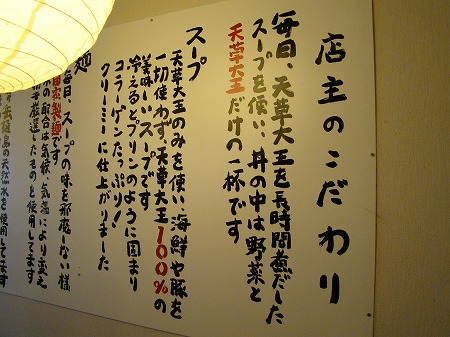 店主のこだわり
毎日、天草大王を長時間煮だした
スープを使い、丼の中は野菜と
天草大王だけの一杯です
スープ
天草大王のみを使い、海鮮や豚を
一切使わず、天草大王100%の
美味しいスープです
冷えるとプリンのように固まり
コラーゲンたっぷり!
クリーミーに仕上がりました
麺
毎日、スープの味を邪魔しない様
製麺です
の配合は気候、気温により変え
厳選したものを使用してます
島の天然水を使用してます